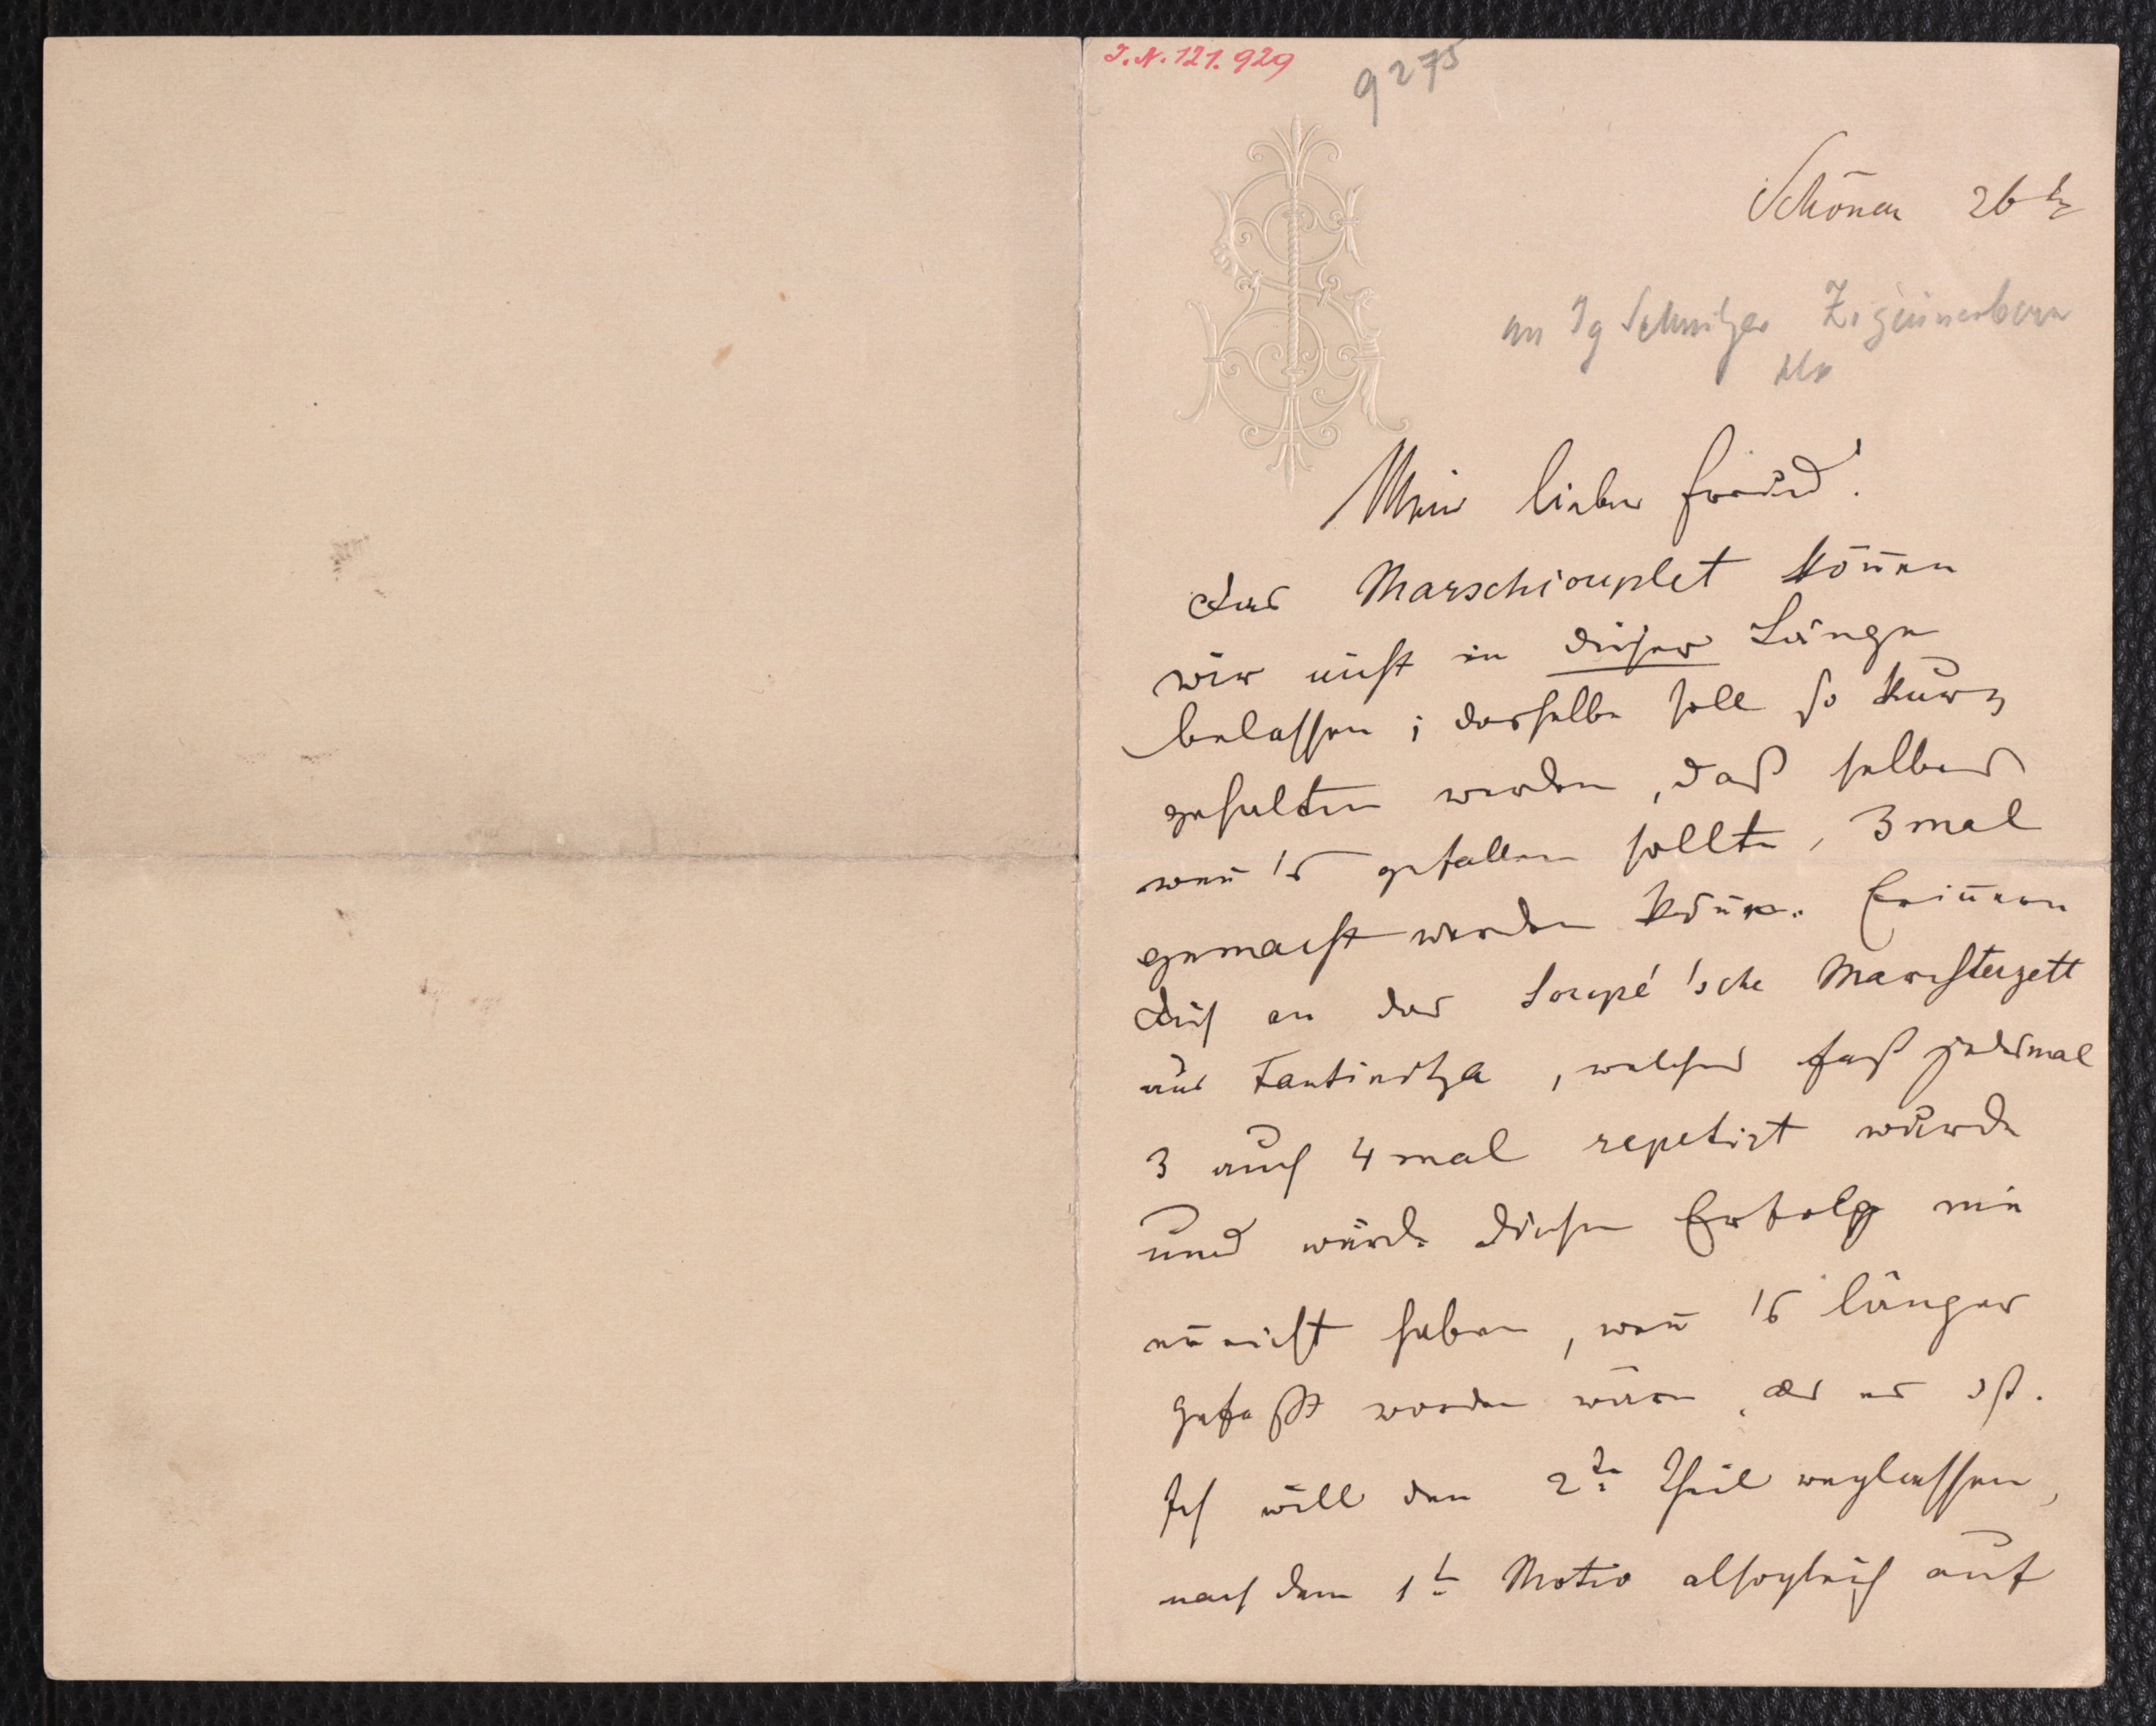 I.N. 121.929
9275
Schönau 26
an Ig Schnitzer Zigeunerbaron
Mein lieber Freund!
Das Marschcouplet köñen
wir nicht in dieser Länge
belassen; dasselbe soll so kurz
gehalten werden, daß selbes
weñ's gefallen sollte, 3 mal
gemacht werden köñe. Eriñern
Dich an das Soupé'sche Marschterzett
aus Fantinitza, welches fast jedesmal
3 auch 4 mal repetirt wurde
und würde diesen Erfolg nie
erreicht haben, weñ's länger
gefaßt worden wäre, als es ist.
Ich will den 2te Theil weglassen,
nach dem 1t Motiv alsogleich auf